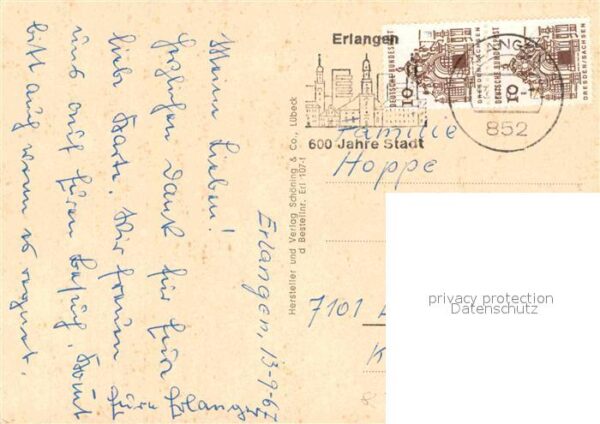 Meine Lieben!
Herzlichen Dank für Eure
liebe Karte. Wir freuen
uns auf Euren Besuch. Kommt
bitte auch wenn es regnet.
Erlangen, 13-9-67
Erlangen
600 Jahre Stadt
852
DEUTSCHE BUNDESPOST
10
DRESDEN/SACHSEN
DEUTSCHE BUNDESPOST
10
DRESDEN/SACHSEN
Familie
Hoppe
7101
K
Hersteller und Verlag Schöning & Co., Lübeck
d Bestellnr. Erl 107-f
privacy protection
Datenschutz